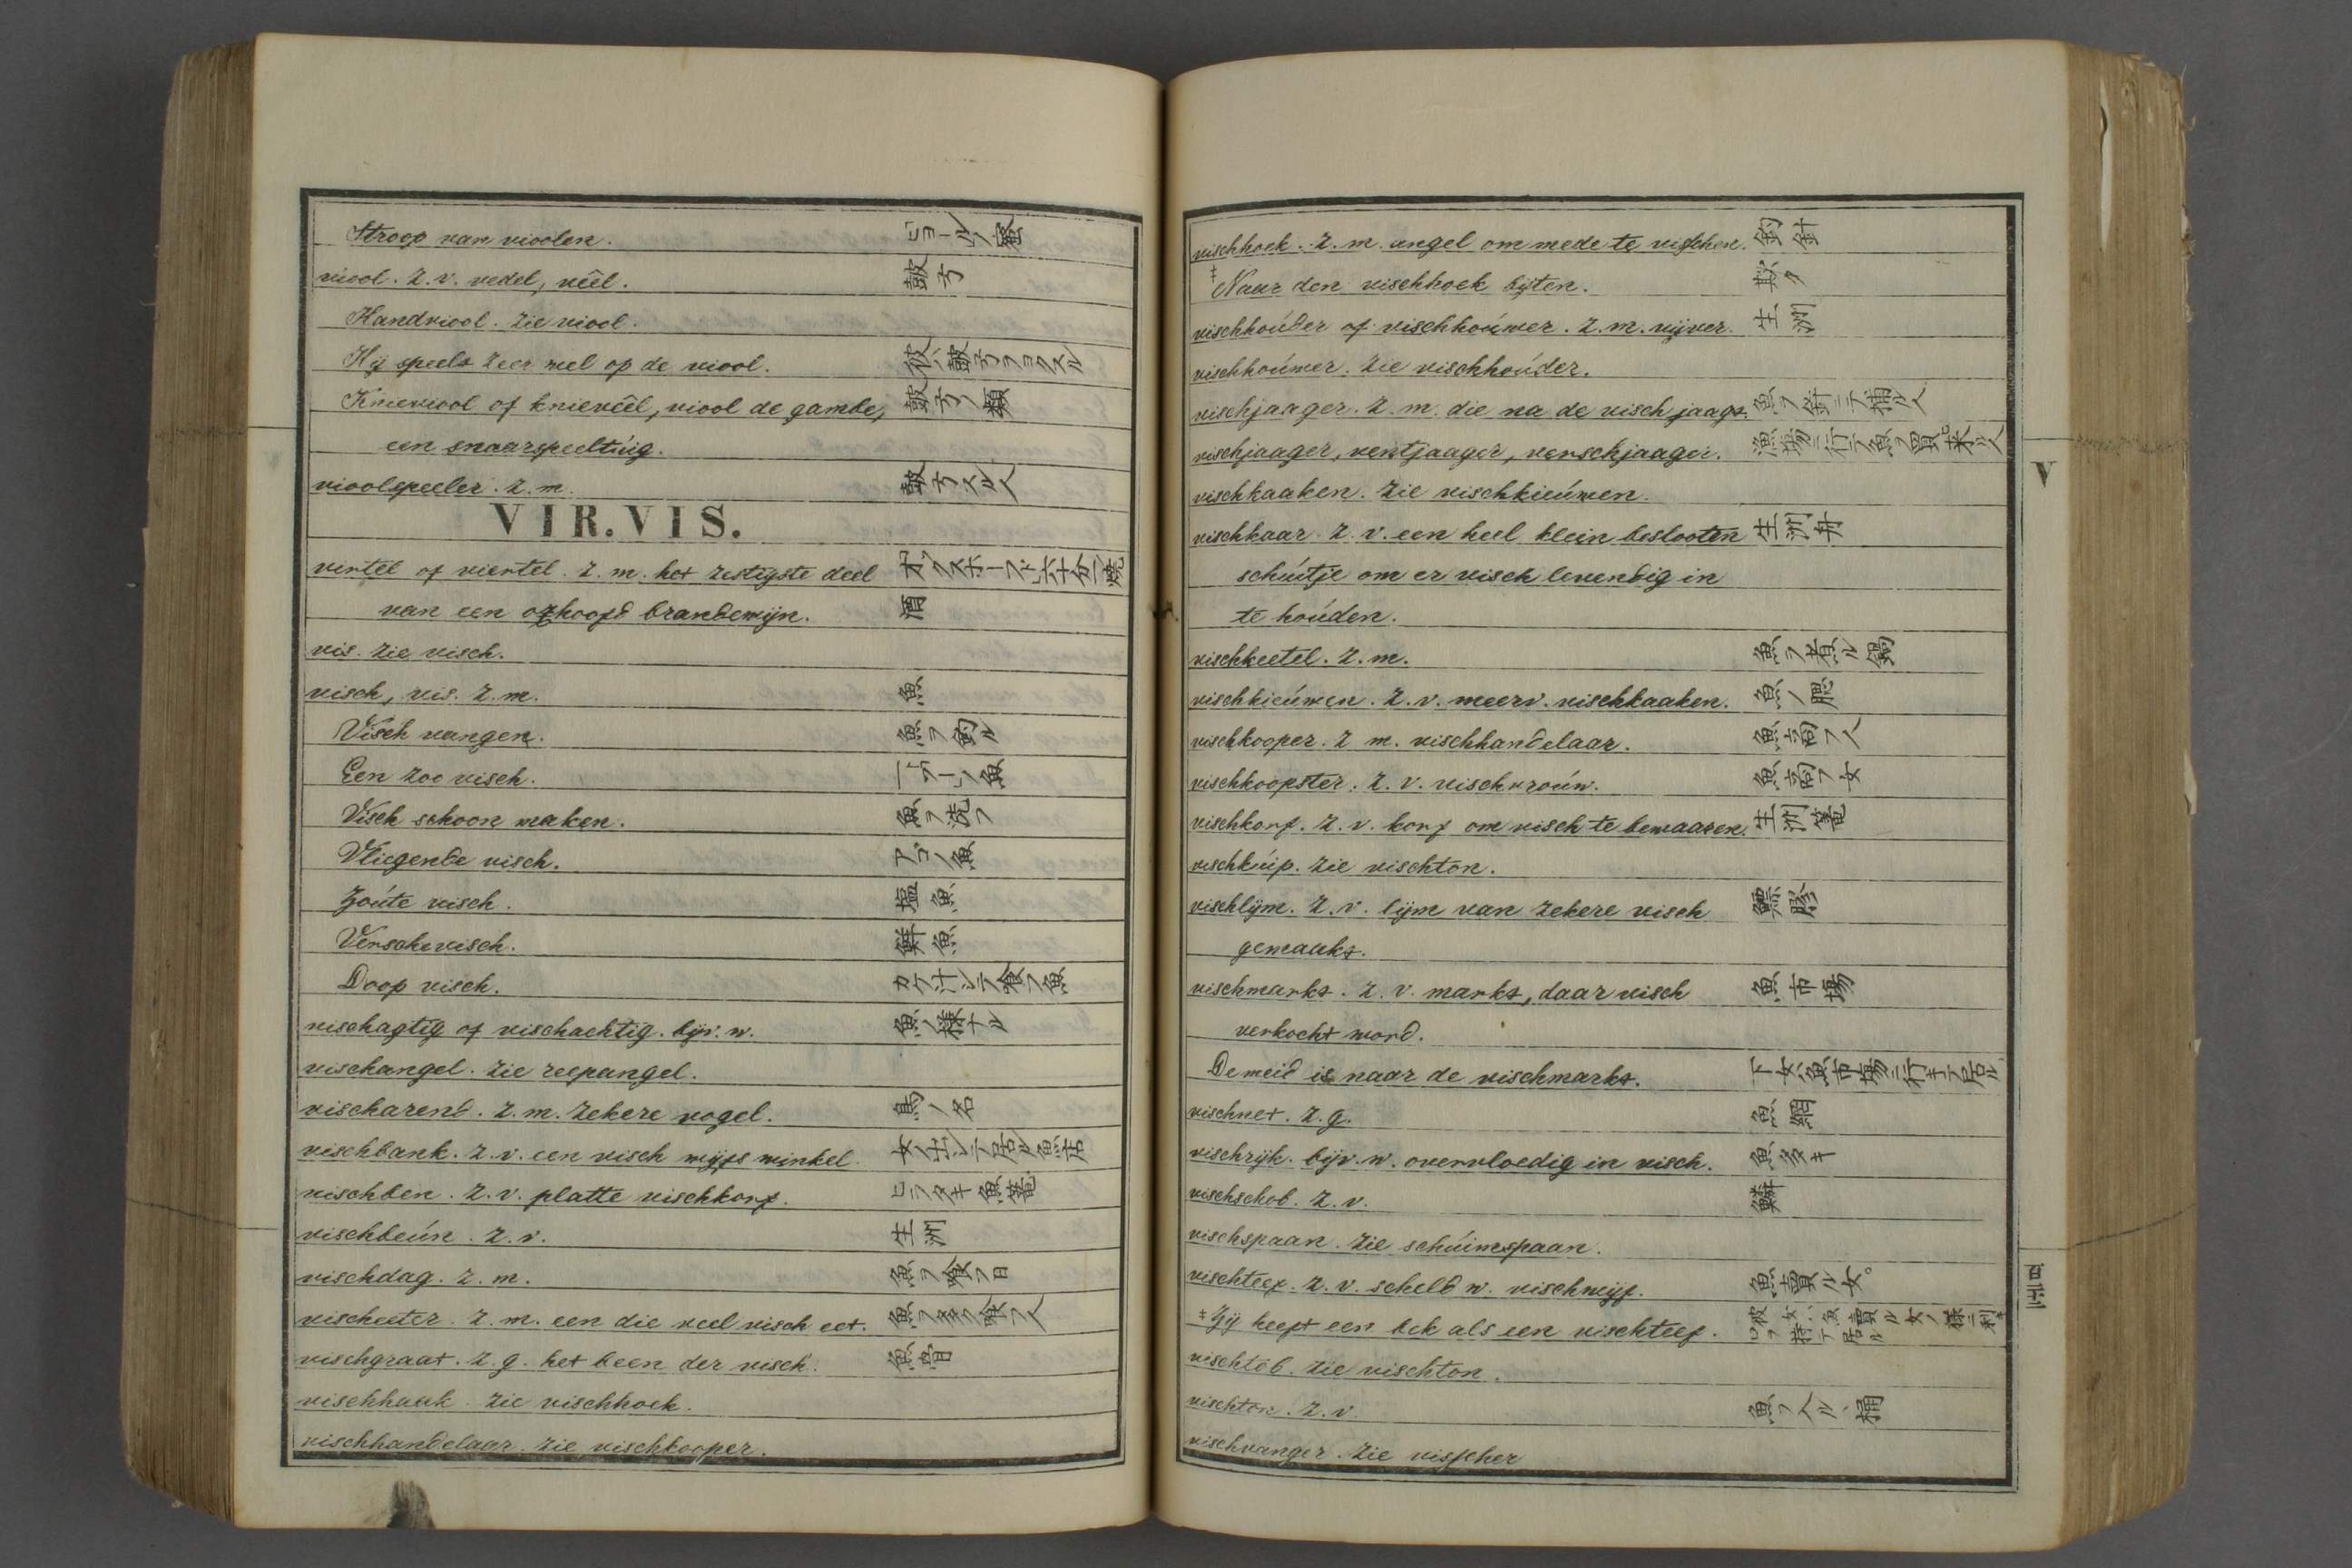 Stroop van vioolen. ビヨールノ蜜
viool. z. v. vedel, vêêl. 鼓弓
Handviool. zie viool.
Hij speelt zeer wel op de viool. 彼ハ鼓弓ヲヨクスル
Knieviool of knievêêl, viool de gambe, 鼓弓ノ類
een snaarspeeltúig.
vioolspeeler. z. m. 鼓弓スル人
VIR. VIS.
virtel of viertel. z. m. het zestigste deel
van een oxhoofd brandewijn. 酒
vis. zie visch.
visch, vis. z. m. 魚
Visch vangen. 魚ヲ釣ル
Een zoo visch.
Visch schoon maken. 魚ヲ洗フ
Vliegende visch. アゴノ魚
Zoúte visch. 塩魚
Versche visch. 鮮魚
Doop visch. カケ汁シテ喰フ魚
vischagtig of vischachtig. bijv. w. 魚ノ様ナル
vischangel. zie reepangel.
vischarend. z. m. zekere vogel. 鳥ノ名
vischbank. z. v. een visch wijfs winkel. 女ノ出シテ居ル魚店
vischben. z. v. platte vischkorf. ヒラタキ魚篭
vischbeún. z. v. 生洲
vischdag. z. m. 魚ヲ喰フ日
vischeeter. z. m. een die veel visch eet. 魚ヲ多ク喰フ人
vischgraat. z. g. het been der visch. 魚骨
vischhaak. zie vischhoek.
vischhandelaar. zie vischkooper.
vischhoek. z. m. angel om mede te visschen. 釣針
‡ Naar den vischhoek bijten.
vischhoúder of vischhoúwer. z. m. vijver. 生洲
vischhoúwer. zie vischhoúder.
vischjaager. z. m. die na de visch jaagt. 魚ヲ舟ニテ捕ル人
vischjaager, ventjaager, verschjaager. 漁場ニ行テ魚ヲ買ヒ来ル人
vischkaaken. zie vischkieúwen.
vischkaar. z. v. een heel klein beslooten 生洲舟
schúitje om er visch levendig in
te hoúden.
vischkeetel. z. m. 魚ヲ煮ル鍋
vischkieúwen. z. v. meerv. vischkaaken. 魚ノ腮
vischkooper. z. m. vischhandelaar. 魚商フ人
vischkoopster. z. v. vischvroúw. 魚商フ女
vischkorf. z. v. korf om visch te bewaaren. 生洲篭
vischkúip. zie vischton.
vischlijm. z. v. lijm van zekere visch
gemaakt.
vischmarkt. z. v. markt, daar visch 魚市場
verkocht word.
De meid is naar de vischmarkt. 下女ハ魚市場ニ行キテ居ル
vischnet. z. g. 魚網
vischrijk. bijv. w. overvloedig in visch. 魚多キ
vischschob. z. v. 鱗
vischspaan. zie schúimspaan.
vischteef. z. v. scheld w. vischwijf. 魚賣ル女。
‡ Zij heeft een bek als een vischteef. 彼女ハ魚賣ル女ノ様ニ利キ口ヲ持テ居ル
vischtób. zie vischton.
vischton. z. v. 魚ヲ入ルヽ桶
vischvanger. zie visscher
V